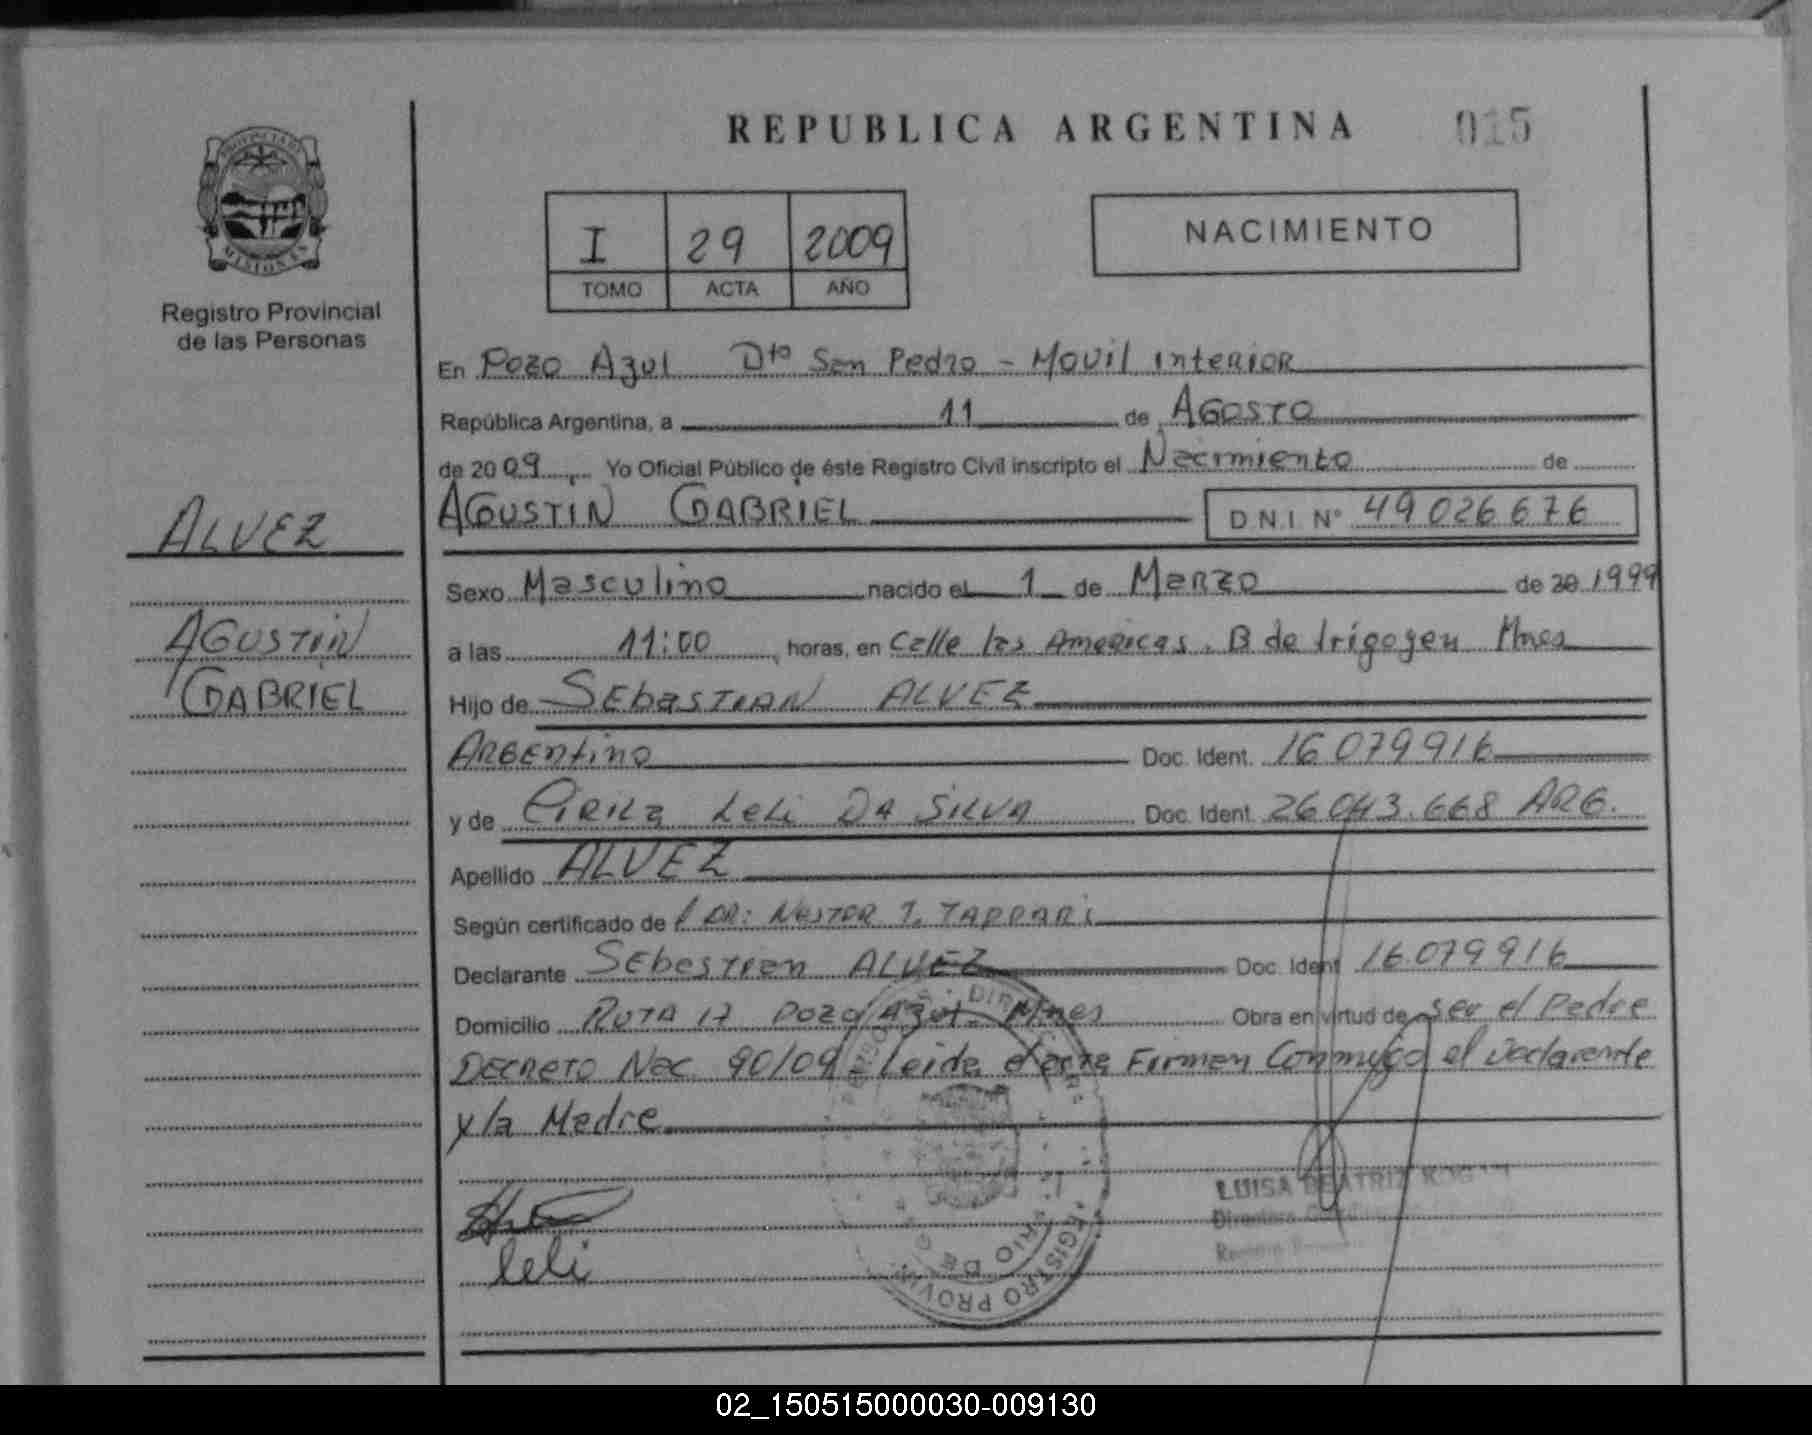 REPUBLICA ARGENTINA
015
PROVINCIA DE
MISIONES
Registro Provincial
de las Personas
I 29 2009
TOMO ACTA AÑO
NACIMIENTO
En Pozo Azul Dto San Pedro - Movil interior
República Argentina, a 11 de Agosto
de 2009, Yo Oficial Público de éste Registro Civil inscripto el Nacimiento de
AGUSTIN GABRIEL D.N.I. Nº 49026676
ALVEZ
AGUSTIN
GABRIEL
Sexo Masculino nacido el 1 de Marzo de 20 1999
a las 11:00 horas, en Calle las Americas. B de Irigoyen Mnes
Hijo de SEbasTIAN ALVEZ
ARGEntino Doc. Ident. 16.079916
y de Cirila Leli DA SILVA Doc. Ident. 26.043.668 ARG.
Apellido ALVEZ
Según certificado de DR: NESTOR
Declarante SEbasTian ALVEZ Doc. Ident 16.079916
Domicilio RUTA 17 POZO AZUL. Mnes Obra en virtud de ser el Padre
DECRETO Nac 90/09 Leida el acta Firman Conmigo el Declarante
y la Madre
leli
LUISA BEATRIZ
REGISTRO PROVIN
02_150515000030-009130